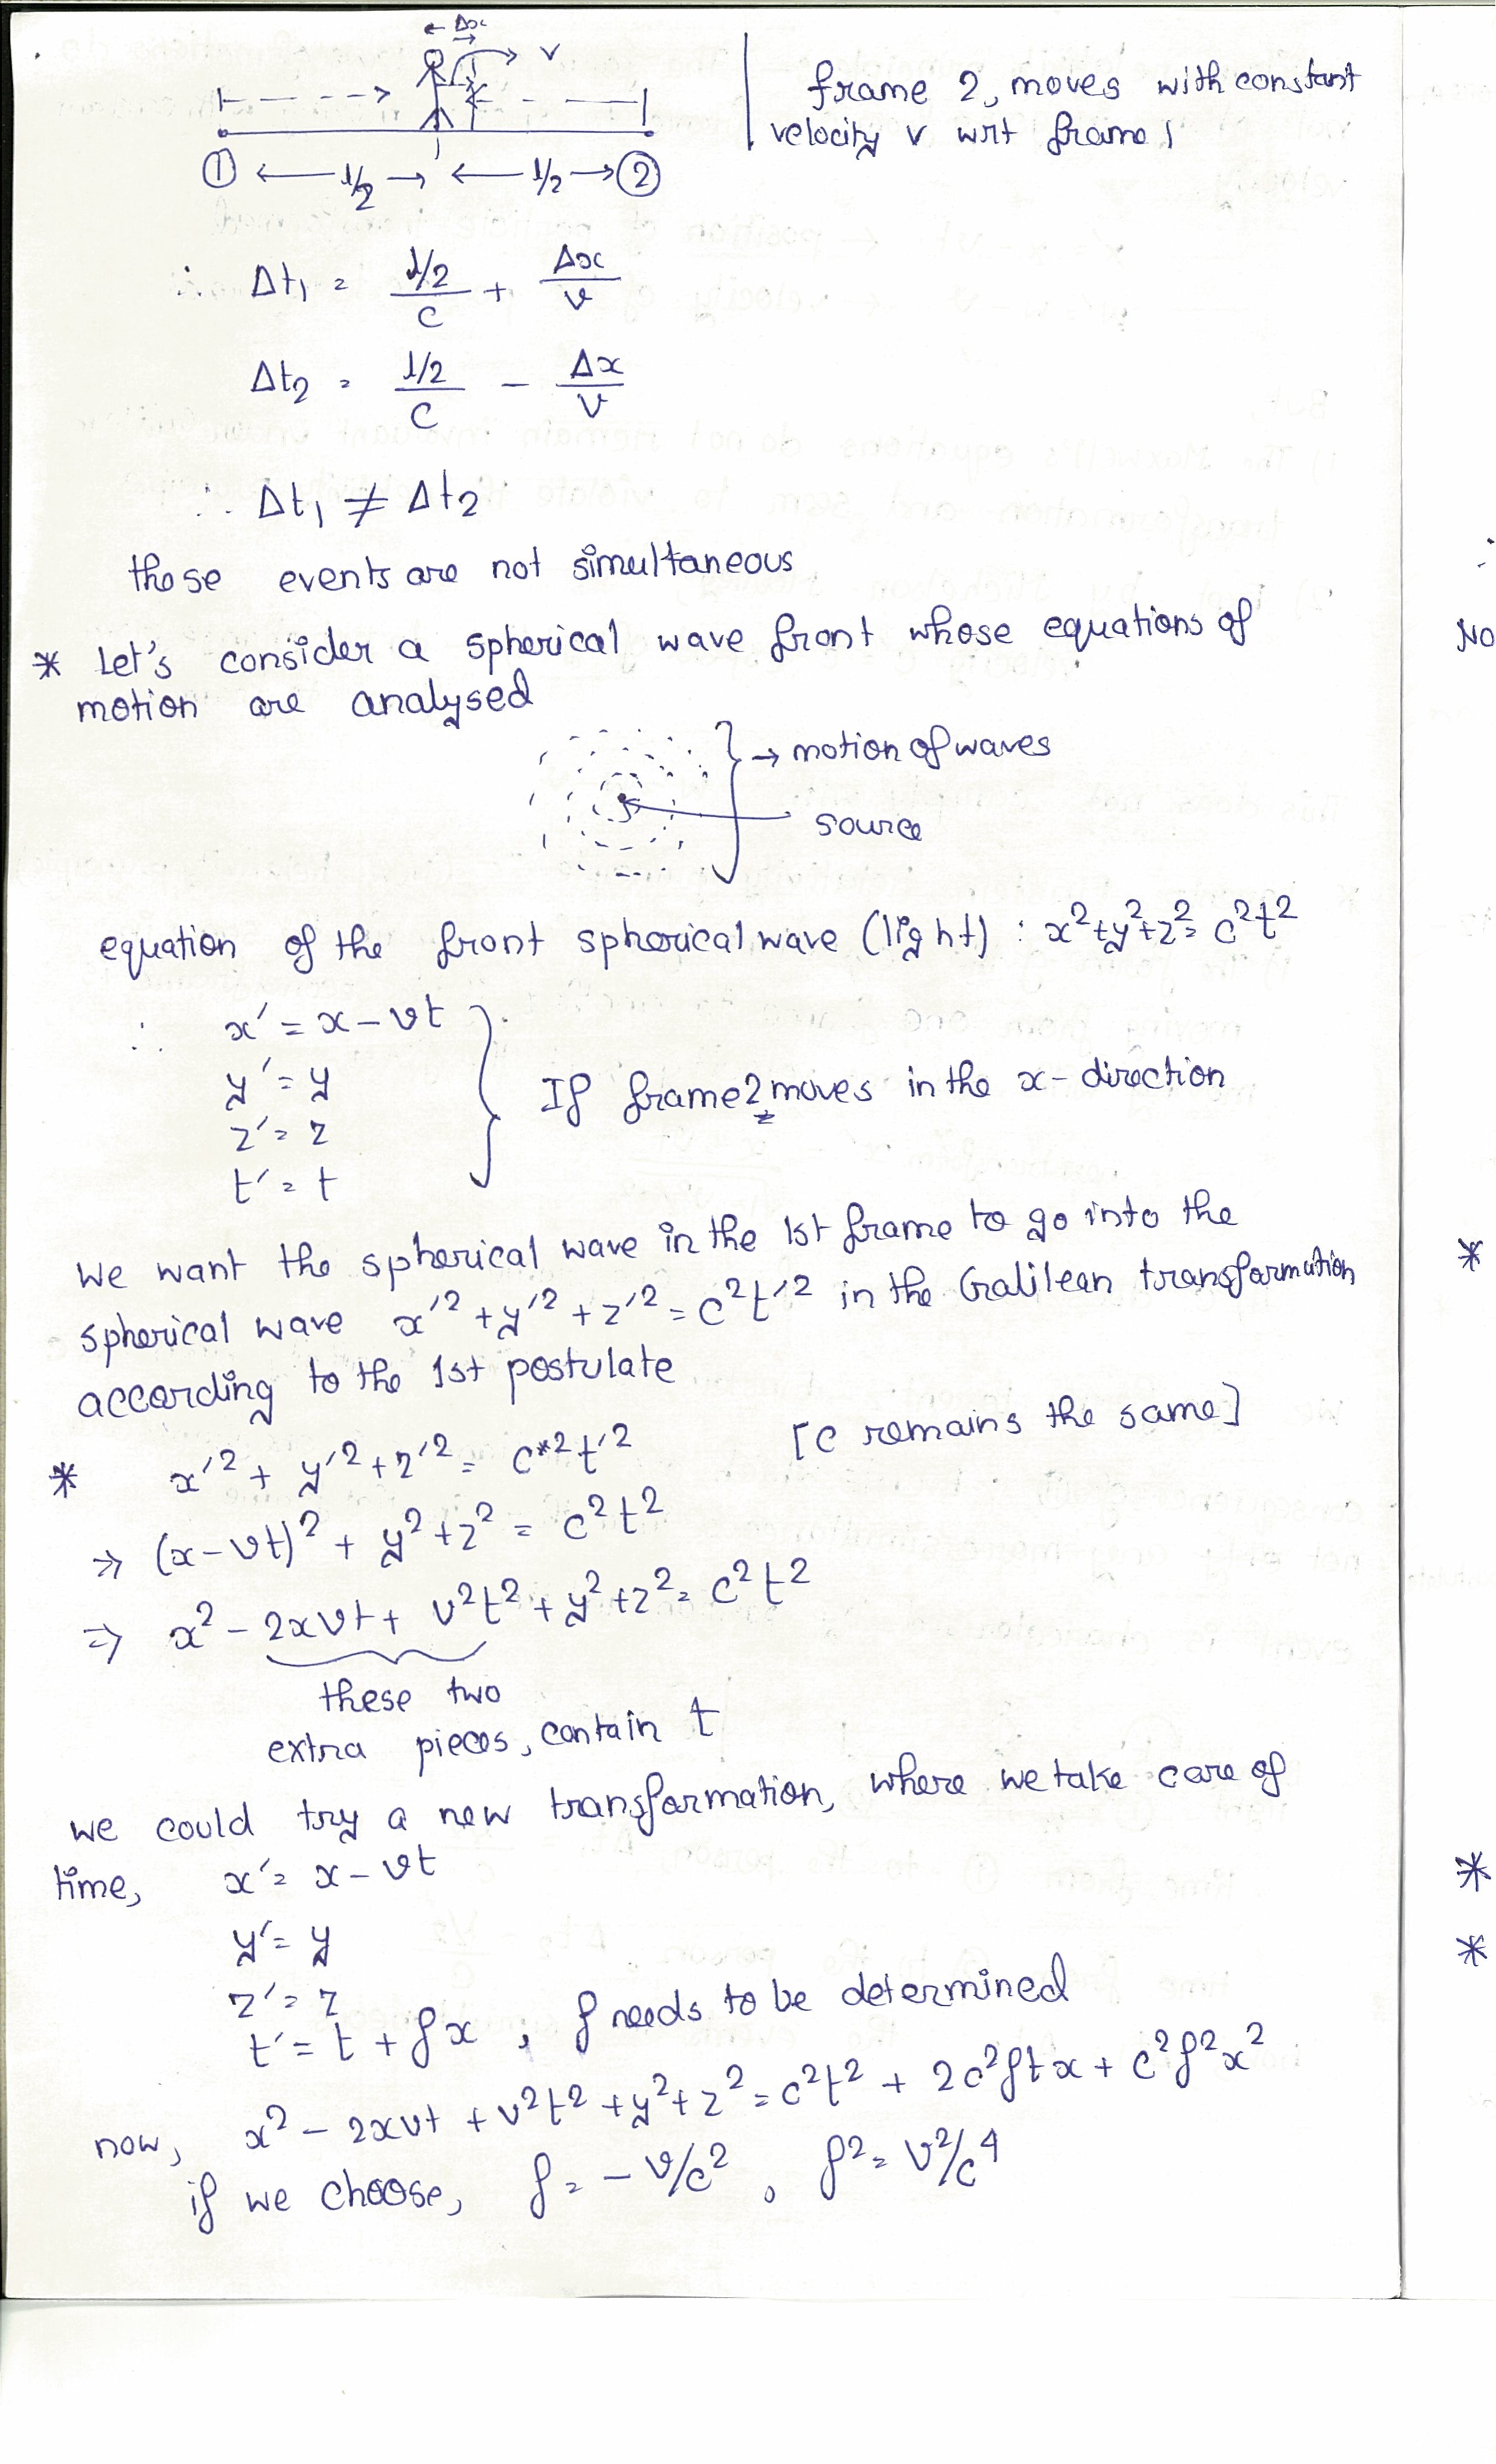 ← Δx →
v
① ← l/2 → ← l/2 → ②
frame 2, moves with constant
velocity v wrt frame 1
∴ Δt₁ = (l/2)/c + Δx/v
Δt₂ = (l/2)/c − Δx/v
∴ Δt₁ ≠ Δt₂
those events are not simultaneous
* Let's consider a spherical wave front whose equations of
motion are analysed
→ motion of waves
source
equation of the front spherical wave (light) : x²+y²+z² = c²t²
∴ x′ = x − vt
y′ = y
z′ = z
t′ = t
If frame 2 moves in the x-direction
we want the spherical wave in the 1st frame to go into the
spherical wave x′² + y′² + z′² = c²t′² in the Galilean transformation
according to the 1st postulate
[c remains the same]
* x′² + y′² + z′² = c*²t′²
⇒ (x − vt)² + y² + z² = c²t²
⇒ x² − 2xvt + v²t² + y² + z² = c²t²
these two
extra pieces, contain t
we could try a new transformation, where we take care of
time, x′ = x − vt
y′ = y
z′ = z
t′ = t + fx , f needs to be determined
now, x² − 2xvt + v²t² + y² + z² = c²t² + 2c²ftx + c²f²x²
if we choose, f = − v/c² , f² = v²/c⁴
No
*
*
*